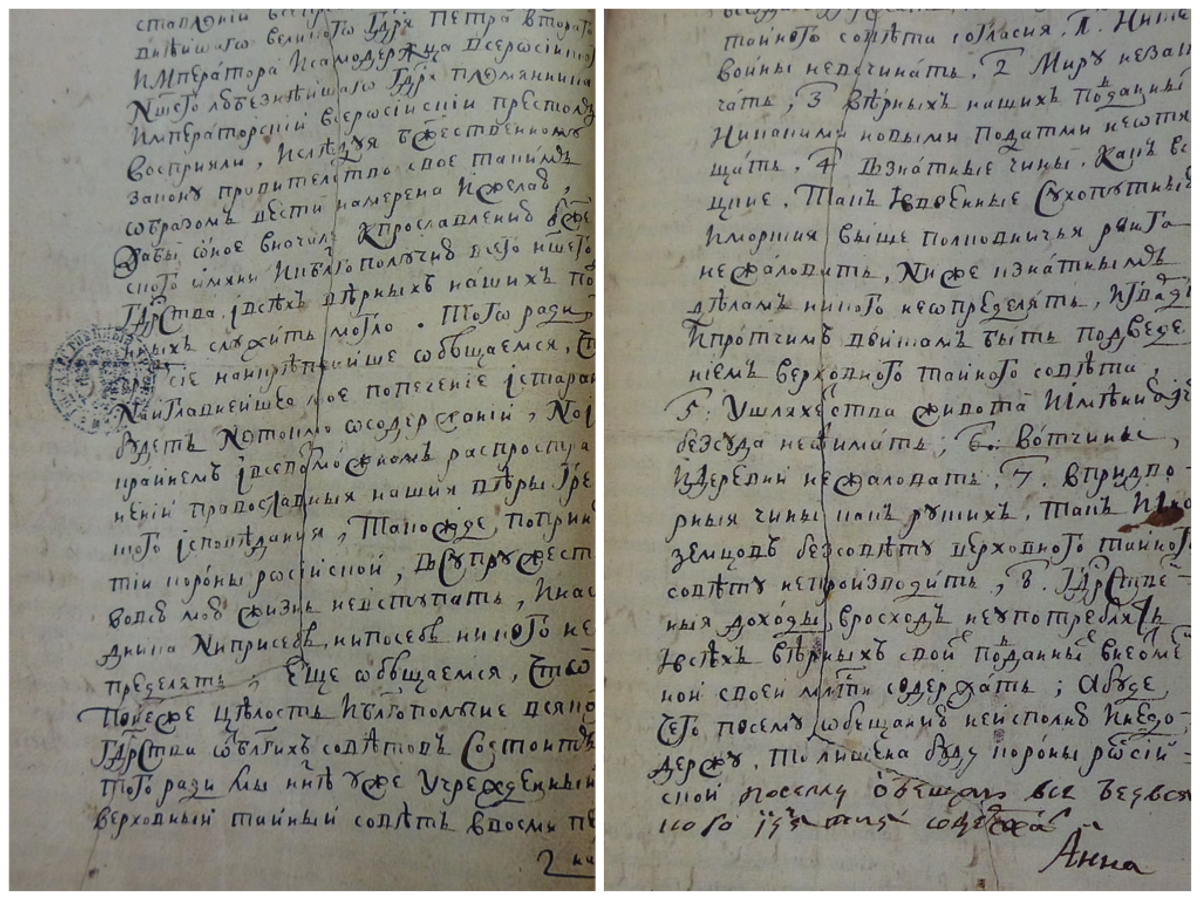 ставлении
днѣишаго великого Гдря Петра втораго
императора исамодержца всеросiиского
Ншего любезнѣишаго Гдря племянника
императорскiй всеросiискiи престолъ
восприяли, и слѣдуя бжественному
закону правителство свое такимъ
ѡбразомъ вести намерена и желаю,
дабы ѡное вначилѣ кпрославлению бже
ского имяни ибл҃гополучию всего ншего
Гдрства, iвсѣхъ вѣрныхъ нашихъ по
ныхъ служить могло. Того ради,
сие наикрѣпчаише ѡбѣщаемся,
Наиглавнеишее мое попечение iстаран
будетъ нетокмо ѡсодержанiи, но i
краинемъ iвсевозможномъ распростра
ненiи православныя нашия вѣры Гре
ческого iсповѣдания, такожде, поприня
тiи короны росiискои, въсупружест
во всю мою жизнь невступать, инас
дника ниприсебѣ, нипосебѣ никого не
пределять, Еще ѡбещаемся, Что
понеже цѣлость ибл҃гополучие всяко
Гдрства ѿбл҃гихъ совѣтовъ состоитъ
того ради мы ннѣ уже учрежденныи
верховныи таиныи совѣтъ ввосми пе
таиного совѣта согласия. 1. Ни
воины невсчинать, 2 Миру незак
чать, 3 вѣрныхъ нашихъ подданны
Никакими новыми податми неѡтя
щать. 4 Взнатные чины. Какъ вс
цкие. Такъ iвоенные сухопутныѣ
иморския выще полковничья ранга
нежаловать, Ниже кзнатнымъ
дѣламъ никого неѡпределять, игвадi
ипротчимъ воискамъ быть подведе
нiемъ верховного таиного совѣта,
5. Ушляхетства живота иiмѣния
безсуда неѿимать; 6. вотчины,
идеревни нежаловать, 7. впридво-
рныя чины какъ руских, такъ ино
земцовъ безсовѣту верховного таиного
совѣту непроизводить, 8. Гдрствен
ныя доходы, вросходъ неупотреблять
iвсѣхъ вѣрныхъ своих подданных внеѡтме
ной своей млти содержать; абуде
чего посему ѡбещанию неисполню инедо
держу, то лишена буду короны росiи-
скои посему обещаю все безвся
кого изятия содержать
Анна